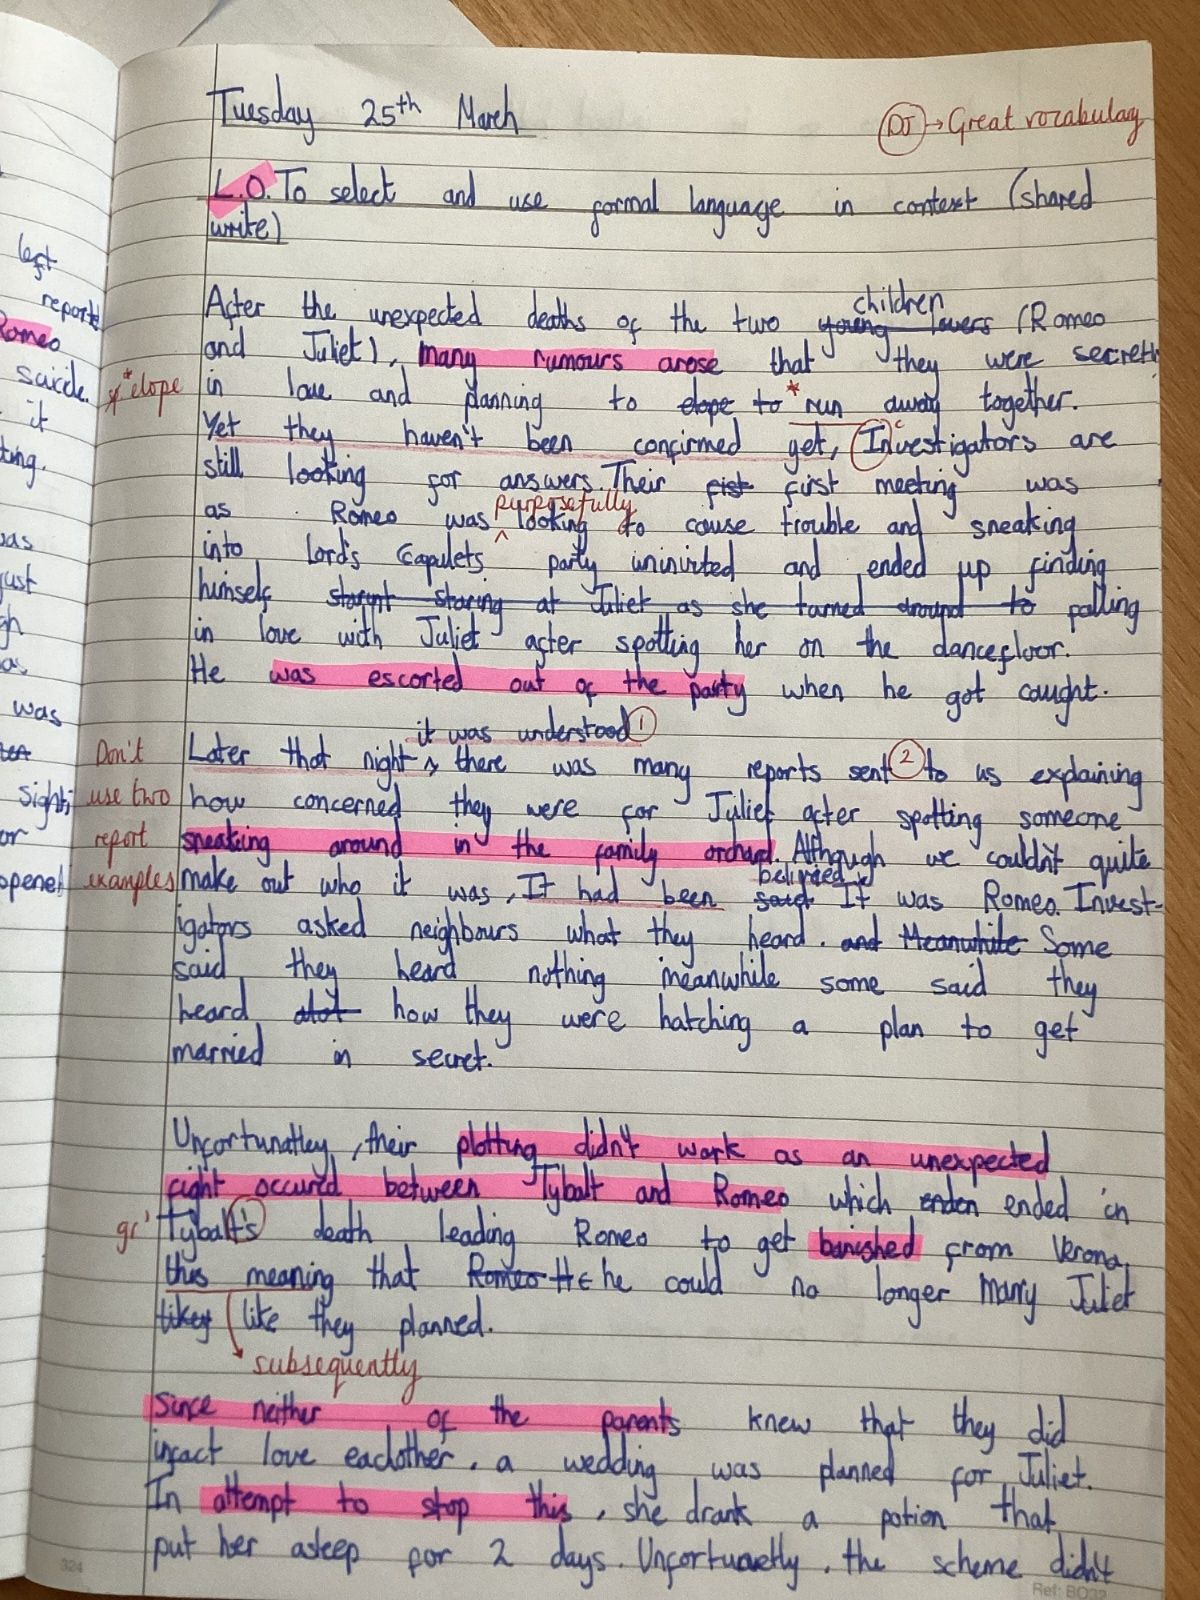 Tuesday 25th March
DJ → Great vocabulary
L.O. To select and use formal language in context (shared
write)
After the unexpected deaths of the two young lovers children (Romeo
and Juliet), many rumours arose that they were secretly
* elope
in love and planning to elope to * run away together.
Yet they haven't been confirmed yet, Investigators are
still looking for answers. Their fist first meeting was
as Romeo was purposefully looking to cause trouble and sneaking
into Lord's Capulets party uninvited and ended up finding
himself staring at Juliet as she turned around to falling
in love with Juliet after spotting her on the dancefloor.
He was escorted out of the party when he got caught.
it was understood 1
Later that night, there was many reports sent 2 to us explaining
how concerned they were for Juliet after spotting someone
sneaking around in the family orchard. Although we couldn't quite
make out who it was, It had been said believed It was Romeo. Invest-
Don't
use two
report
examples
igators asked neighbours what they heard. and Meanwhile Some
said they heard nothing meanwhile some said they
heard alot how they were hatching a plan to get
married in secret.
Unfortunatley, their plotting didn't work as an unexpected
fight occured between Tybalt and Romeo which enden ended in
gr'
Tybalt's death leading Romeo to get banished from Verona,
this meaning that Romeo He he could no longer marry Juliet
likey like they planned.
subsequently
Since neither of the parents knew that they did
infact love eachother, a wedding was planned for Juliet.
In attempt to stop this, she drank a potion that
put her asleep for 2 days. Unfortunetly, the scheme didn't
left
reports
Romeo
suicide.
it
ting.
was
just
gh
as
was
sight;
or
opened
324
Ref: BO32